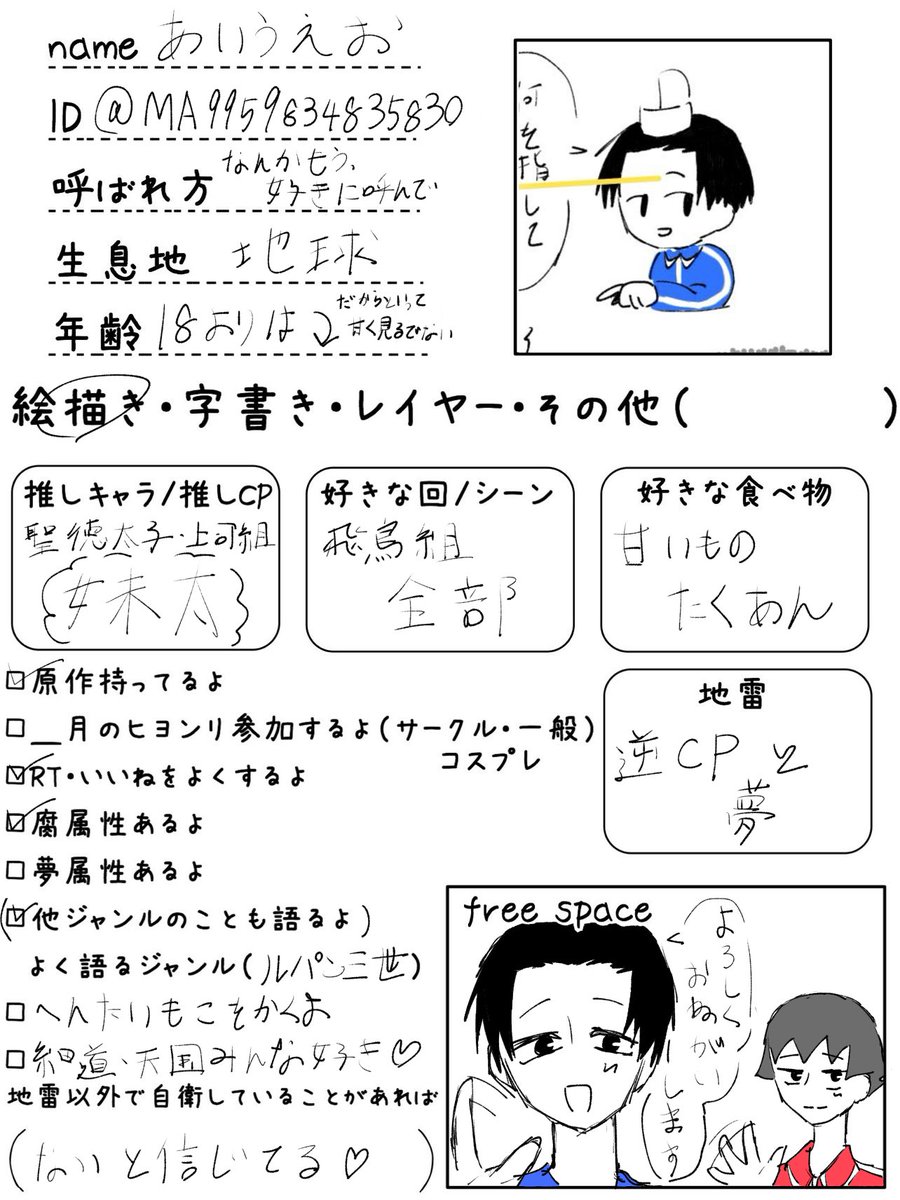 name あいうえお
ID @MA9959634835830
呼ばれ方 なんかもう、
好きに呼んで
生息地 地球
年齢 18よりは↓ だからといって
甘く見るでない
何を指して
絵描き・字書き・レイヤー・その他( )
推しキャラ/推しCP
聖徳太子・上司組
{妹太}
好きな回/シーン
飛鳥組
全部
好きな食べ物
甘いもの
たくあん
☑原作持ってるよ
□__月のヒヨンリ参加するよ(サークル・一般)
コスプレ
☑RT・いいねをよくするよ
☑腐属性あるよ
□夢属性あるよ
(☑他ジャンルのことも語るよ)
よく語るジャンル(ルパン三世)
□へんたいもこそかくよ
□細道・天国みんな好き♡
地雷以外で自衛していることがあれば
(ないと信じてる♡ )
地雷
逆CPと
夢
free space
よろしく
おねがい
します